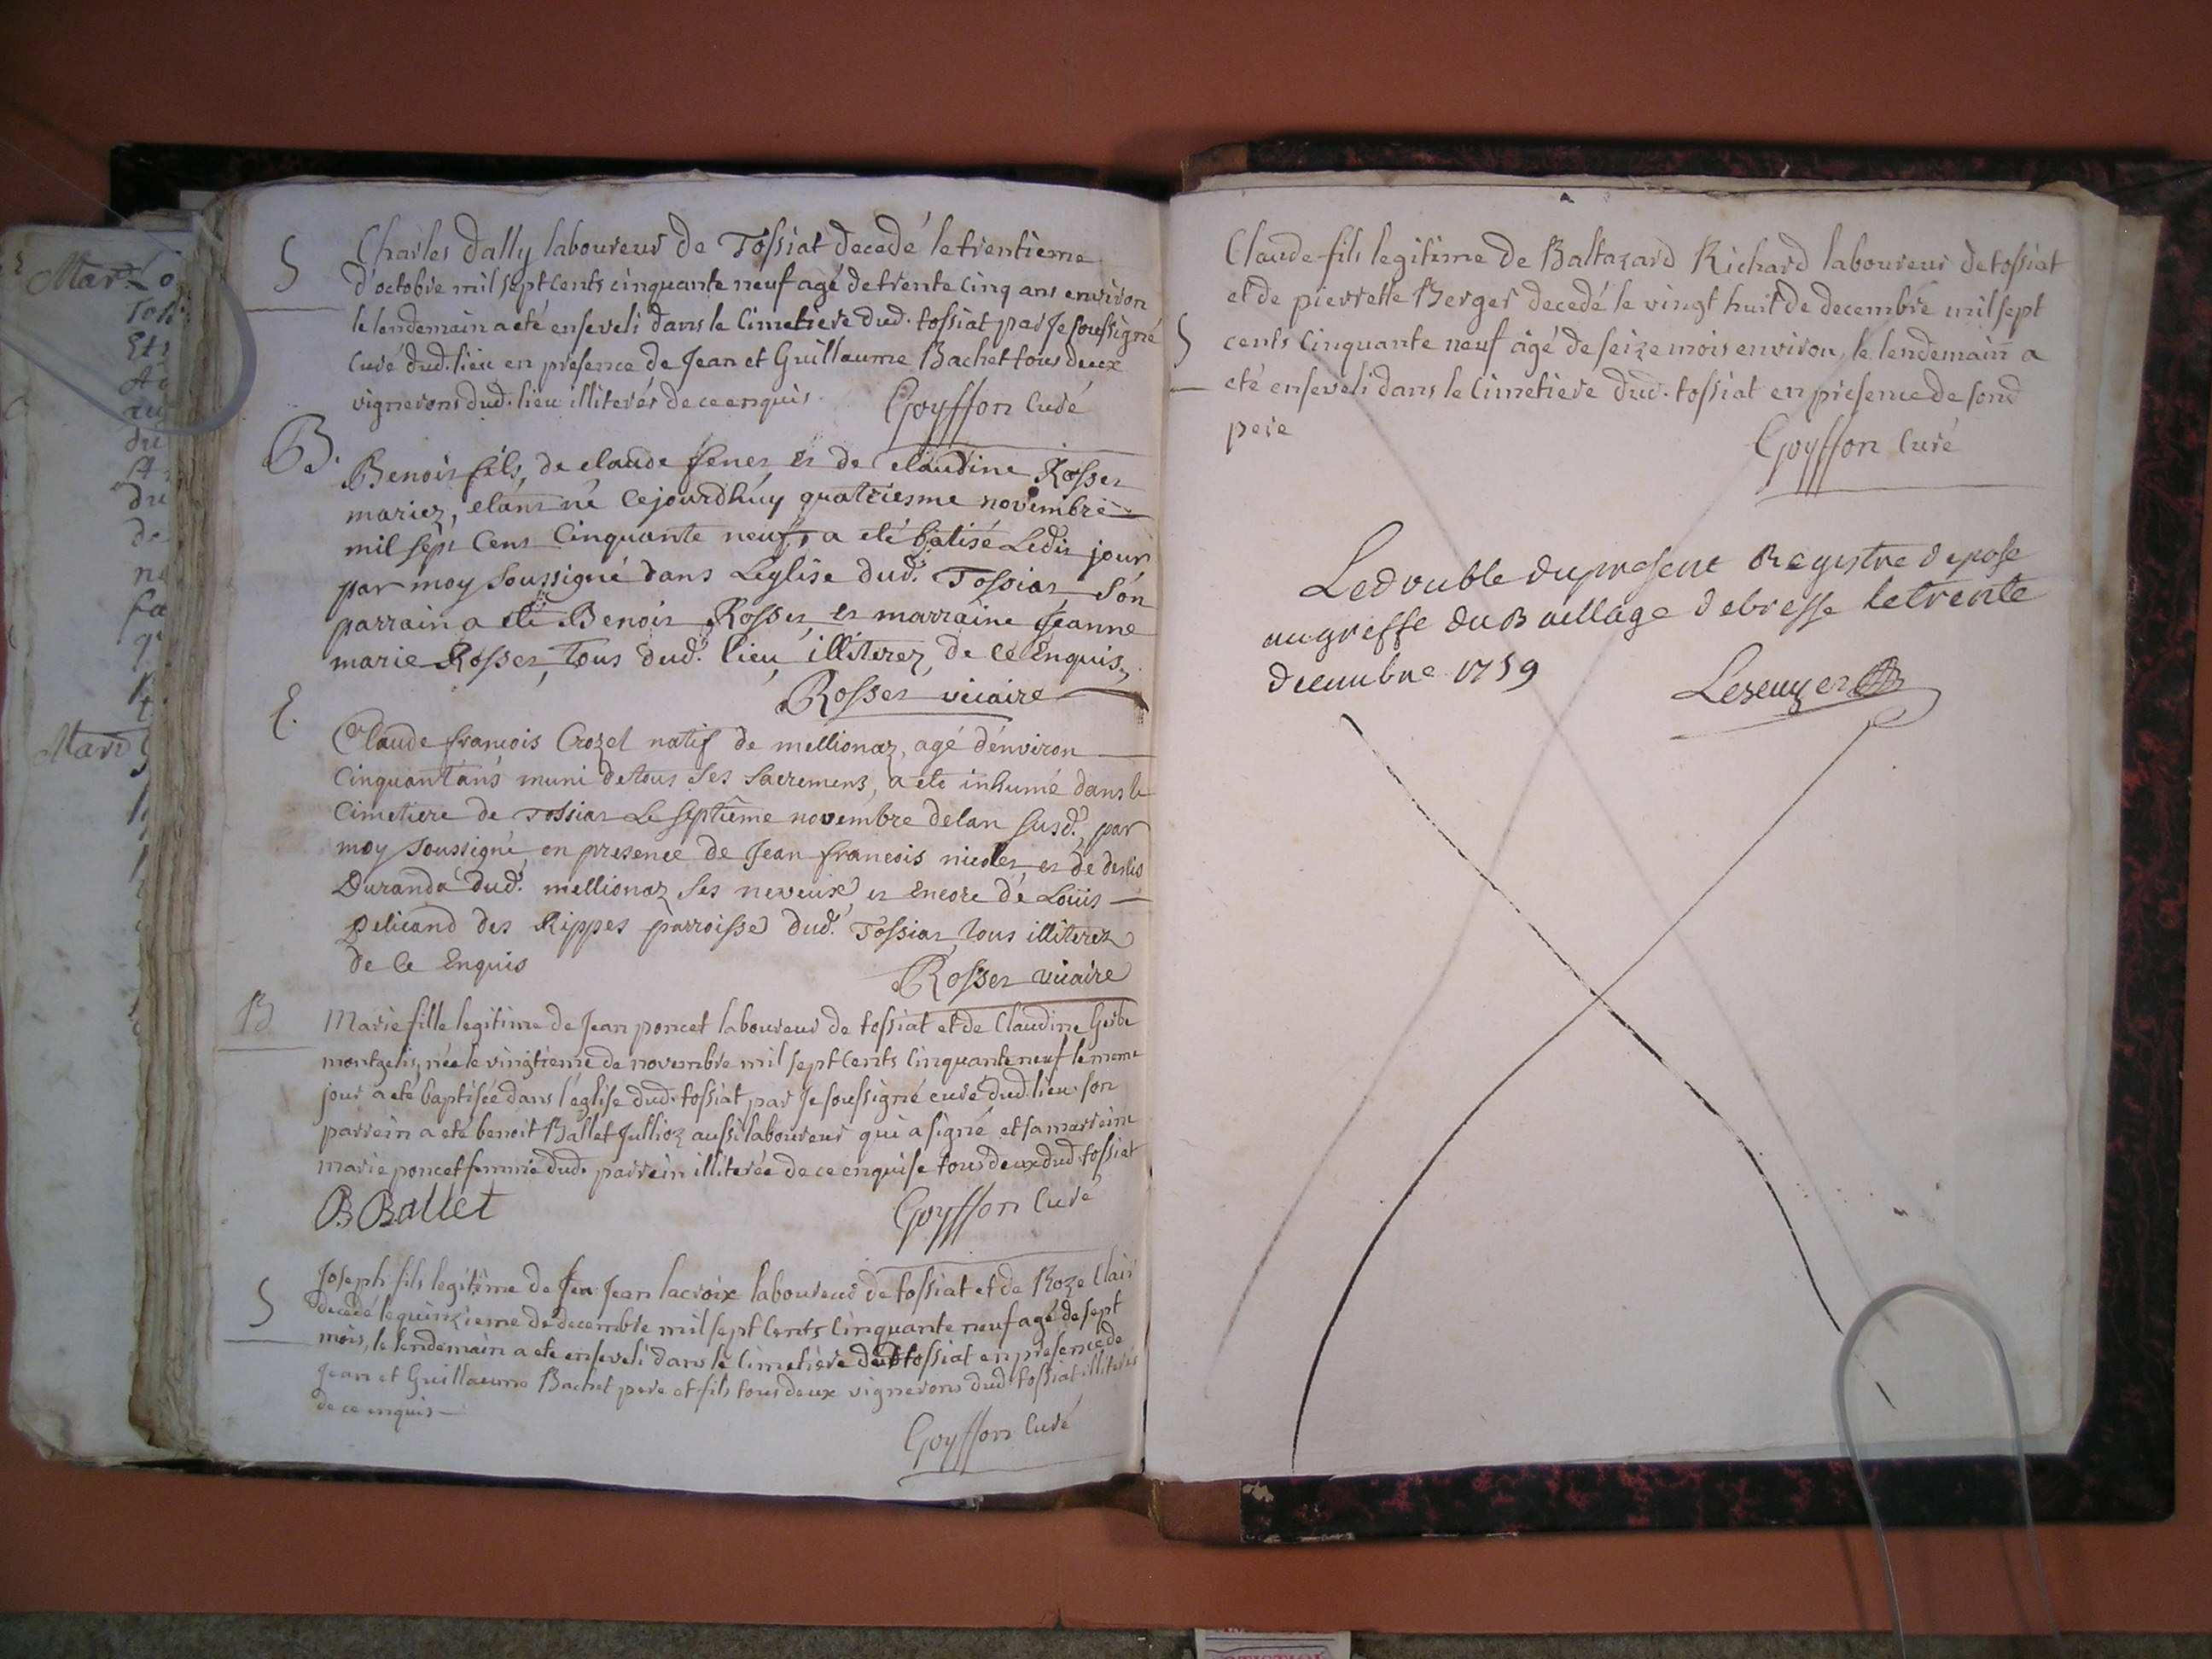 S
Charles Dally laboureur de Tossiat decedé le trentieme
d'octobre mil sept cents cinquante neuf agé de trente cinq ans environ
le lendemain a eté enseveli dans le cimetiere dud. tossiat par Je soussigné
curé dud. lieu en presence de Jean et Guillaume Bachet tous deux
vignerons dud. lieu illiterés de ce enquis.
Goyffon Curé
B.
Benoit fils, de claude et de claudine Rosset
mariez, etant né cejourdhuy quatriesme novembre
mil sept Cent Cinquante neuf, a eté batisé Ledit jour
par moy soussigné dans Léglise dud. Tossiat son
parrain a eté Benoit Rosset et marraine Jeanne
marie Rosset, tous dud. lieu, illiterez, de ce Enquis.
Rosset vicaire
E.
Claude francois Crozet natif de mellionaz, agé d'environ
Cinquant'ans muni de tous ses sacremens, a ete inhumé dans le
Cimetiere de Tossiat Le septieme novembre de lan susd. par
moy soussigné, en presence de Jean francois nicolet, et de
Duranda dud. mellionaz ses neveux, et Encore de Louis
Pelicand des Rippes parroisse dud. Tossiat, tous illiterez
de Ce Enquis
Rosset vicaire
B
Marie fille legitime de Jean poncet laboureur de tossiat et de Claudine
née le vingtieme de novembre mil sept cents cinquante neuf le meme
jour a eté baptisée dans l'église dud. tossiat par Je soussigné curé dud. lieu. son
parrein a eté benoit Ballet Jullioz aussi laboureur qui a signé et sa marreine
marie poncet femme dud. parrein illiterée de ce enquise tous deux dud. tossiat
B Ballet
Goyffon Curé
S
Joseph fils legitime de feu Jean lacroix laboureur de tossiat et de Roze Clair
decedé le quinzieme de decembre mil sept cents cinquante neuf agé de sept
mois, le lendemain a ete enseveli dans le cimetiere dud. tossiat en presence de
Jean et Guillaume Bachet pere et fils tous deux vignerons dud. tossiat illiterés
de ce enquis
Goyffon Curé
Claude fils legitime de Baltazard Richard laboureur de tossiat
et de pierrette Berger decedé le vingt huit de decembre mil sept
S
cents cinquante neuf âgé de seize mois environ, le lendemain a
eté enseveli dans le Cimetiere dud. tossiat en presence de sond
pere
Goyffon Curé
Le double du present Registre depose
au greffe du Baillage de bresse le trente
decembre 1759